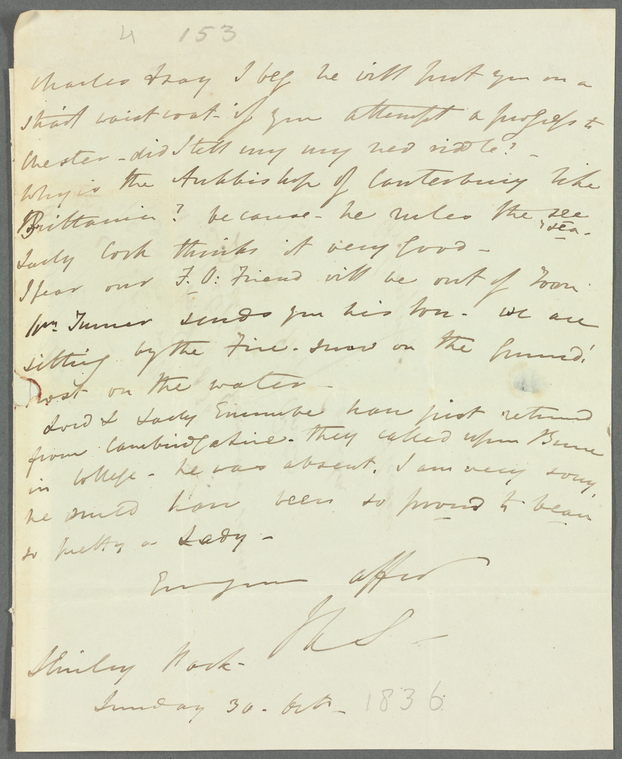 4 153
Charles Gray I beg he will put you on a
strait waistcoat - if you attempt a progress to
Chester - did I tell my riddle? -
Why is the Archbishop of Canterbury like
Brittania? because - he rules the see
sea -
Lady Cork thinks it very good -
I fear our F. O: Friend will be out of Town.
Wm Turner sends you his love - we are
sitting by the Fire - snow on the Ground!
frost on the water -
Lord & Lady have just returned
from Cambridgeshire - they called upon
in College - he was absent. I am very sorry,
he would have been so proud to beau
so pretty a Lady -
affec
S -
Shirley Park -
Sunday 30 - Oct - 1836